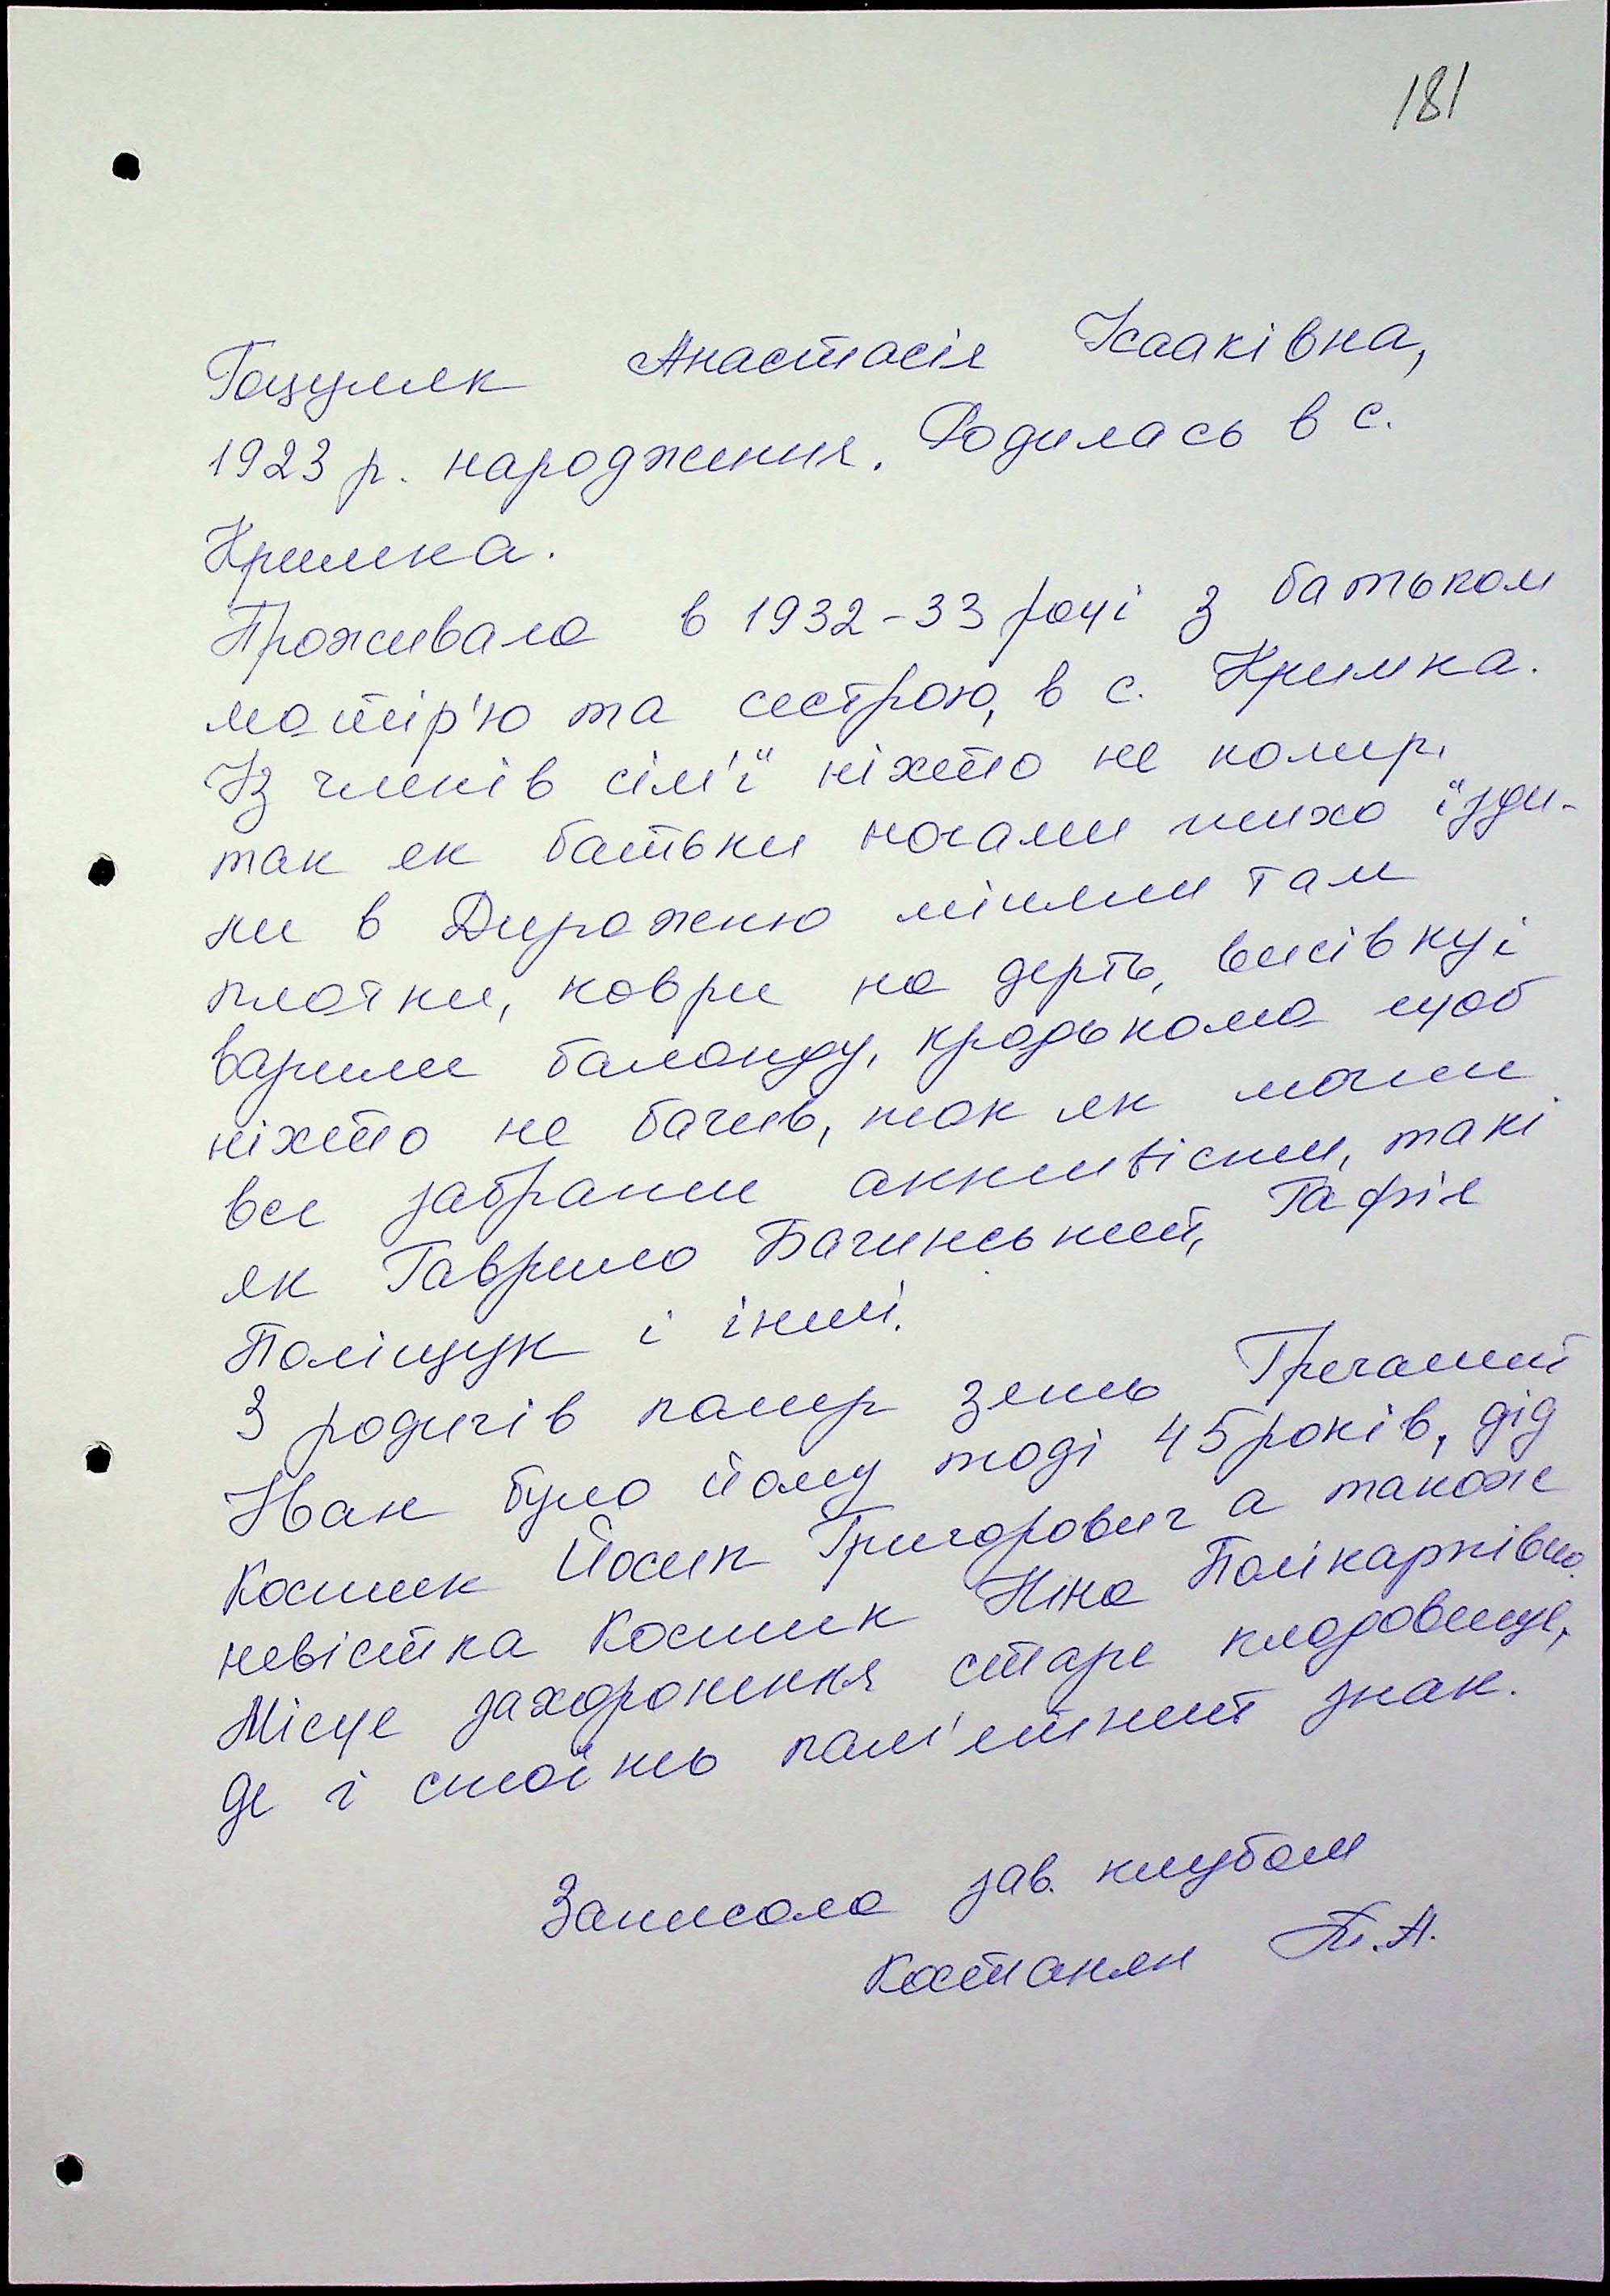 181
Гоцуляк Анастасія Ісааківна,
1923 р. народження. Родилась в с.
Кримка.
Проживала в 1932-33 році з батьком
матір'ю та сестрою, в с. Кримка.
Із членів сім'ї ніхто не помер,
так як батьки ночами тихо їзди-
ли в Диражню міняли там
платки, коври на дерть, висівку і
варили баланду, крадькома щоб
ніхто не бачив, так як могли
все забрати активісти, такі
як Гаврило Бачинський, Гафія
Поліщук і інші.
З родичів помер зять Гречаний
Іван було йому тоді 45 років, дід
Косник Йосип Григорович а також
невістка Косник Ніна Полікарпівна.
Місце захоронення старе кладовище,
де і стоїть пам'ятний знак.
Записала зав. клубом
Костанян Т.А.